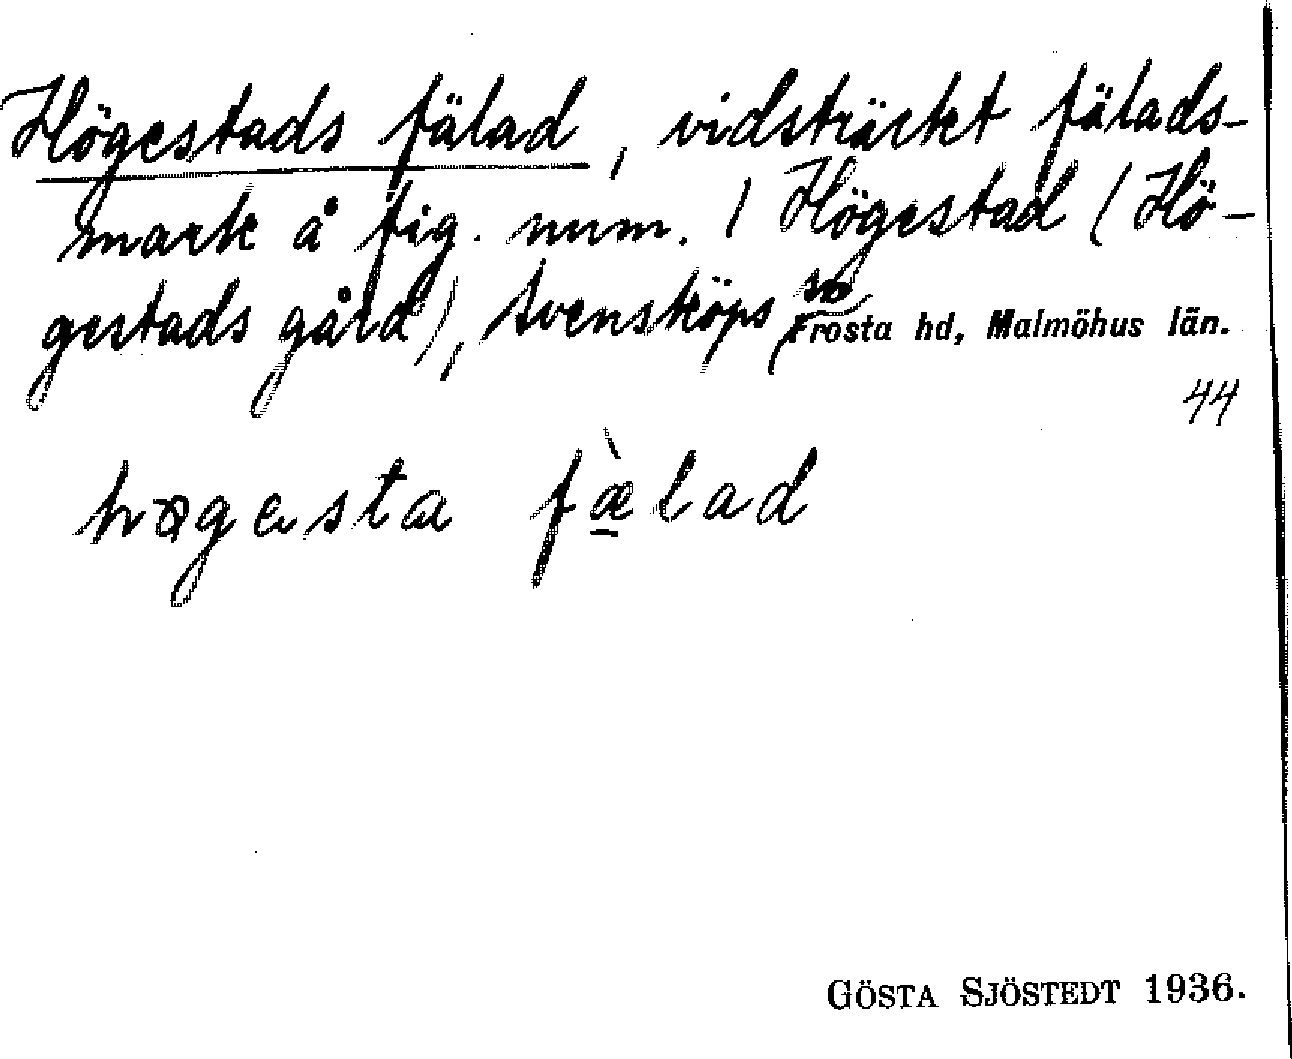 Högestads fälad, vidsträckt fälads-
mark å fig. num. 1 Högestad (Hö-
gestads gård), Svensköps sn
Frosta hd, Malmöhus län.
44
høgesta fæ̀lad
GÖSTA SJÖSTEDT 1936.